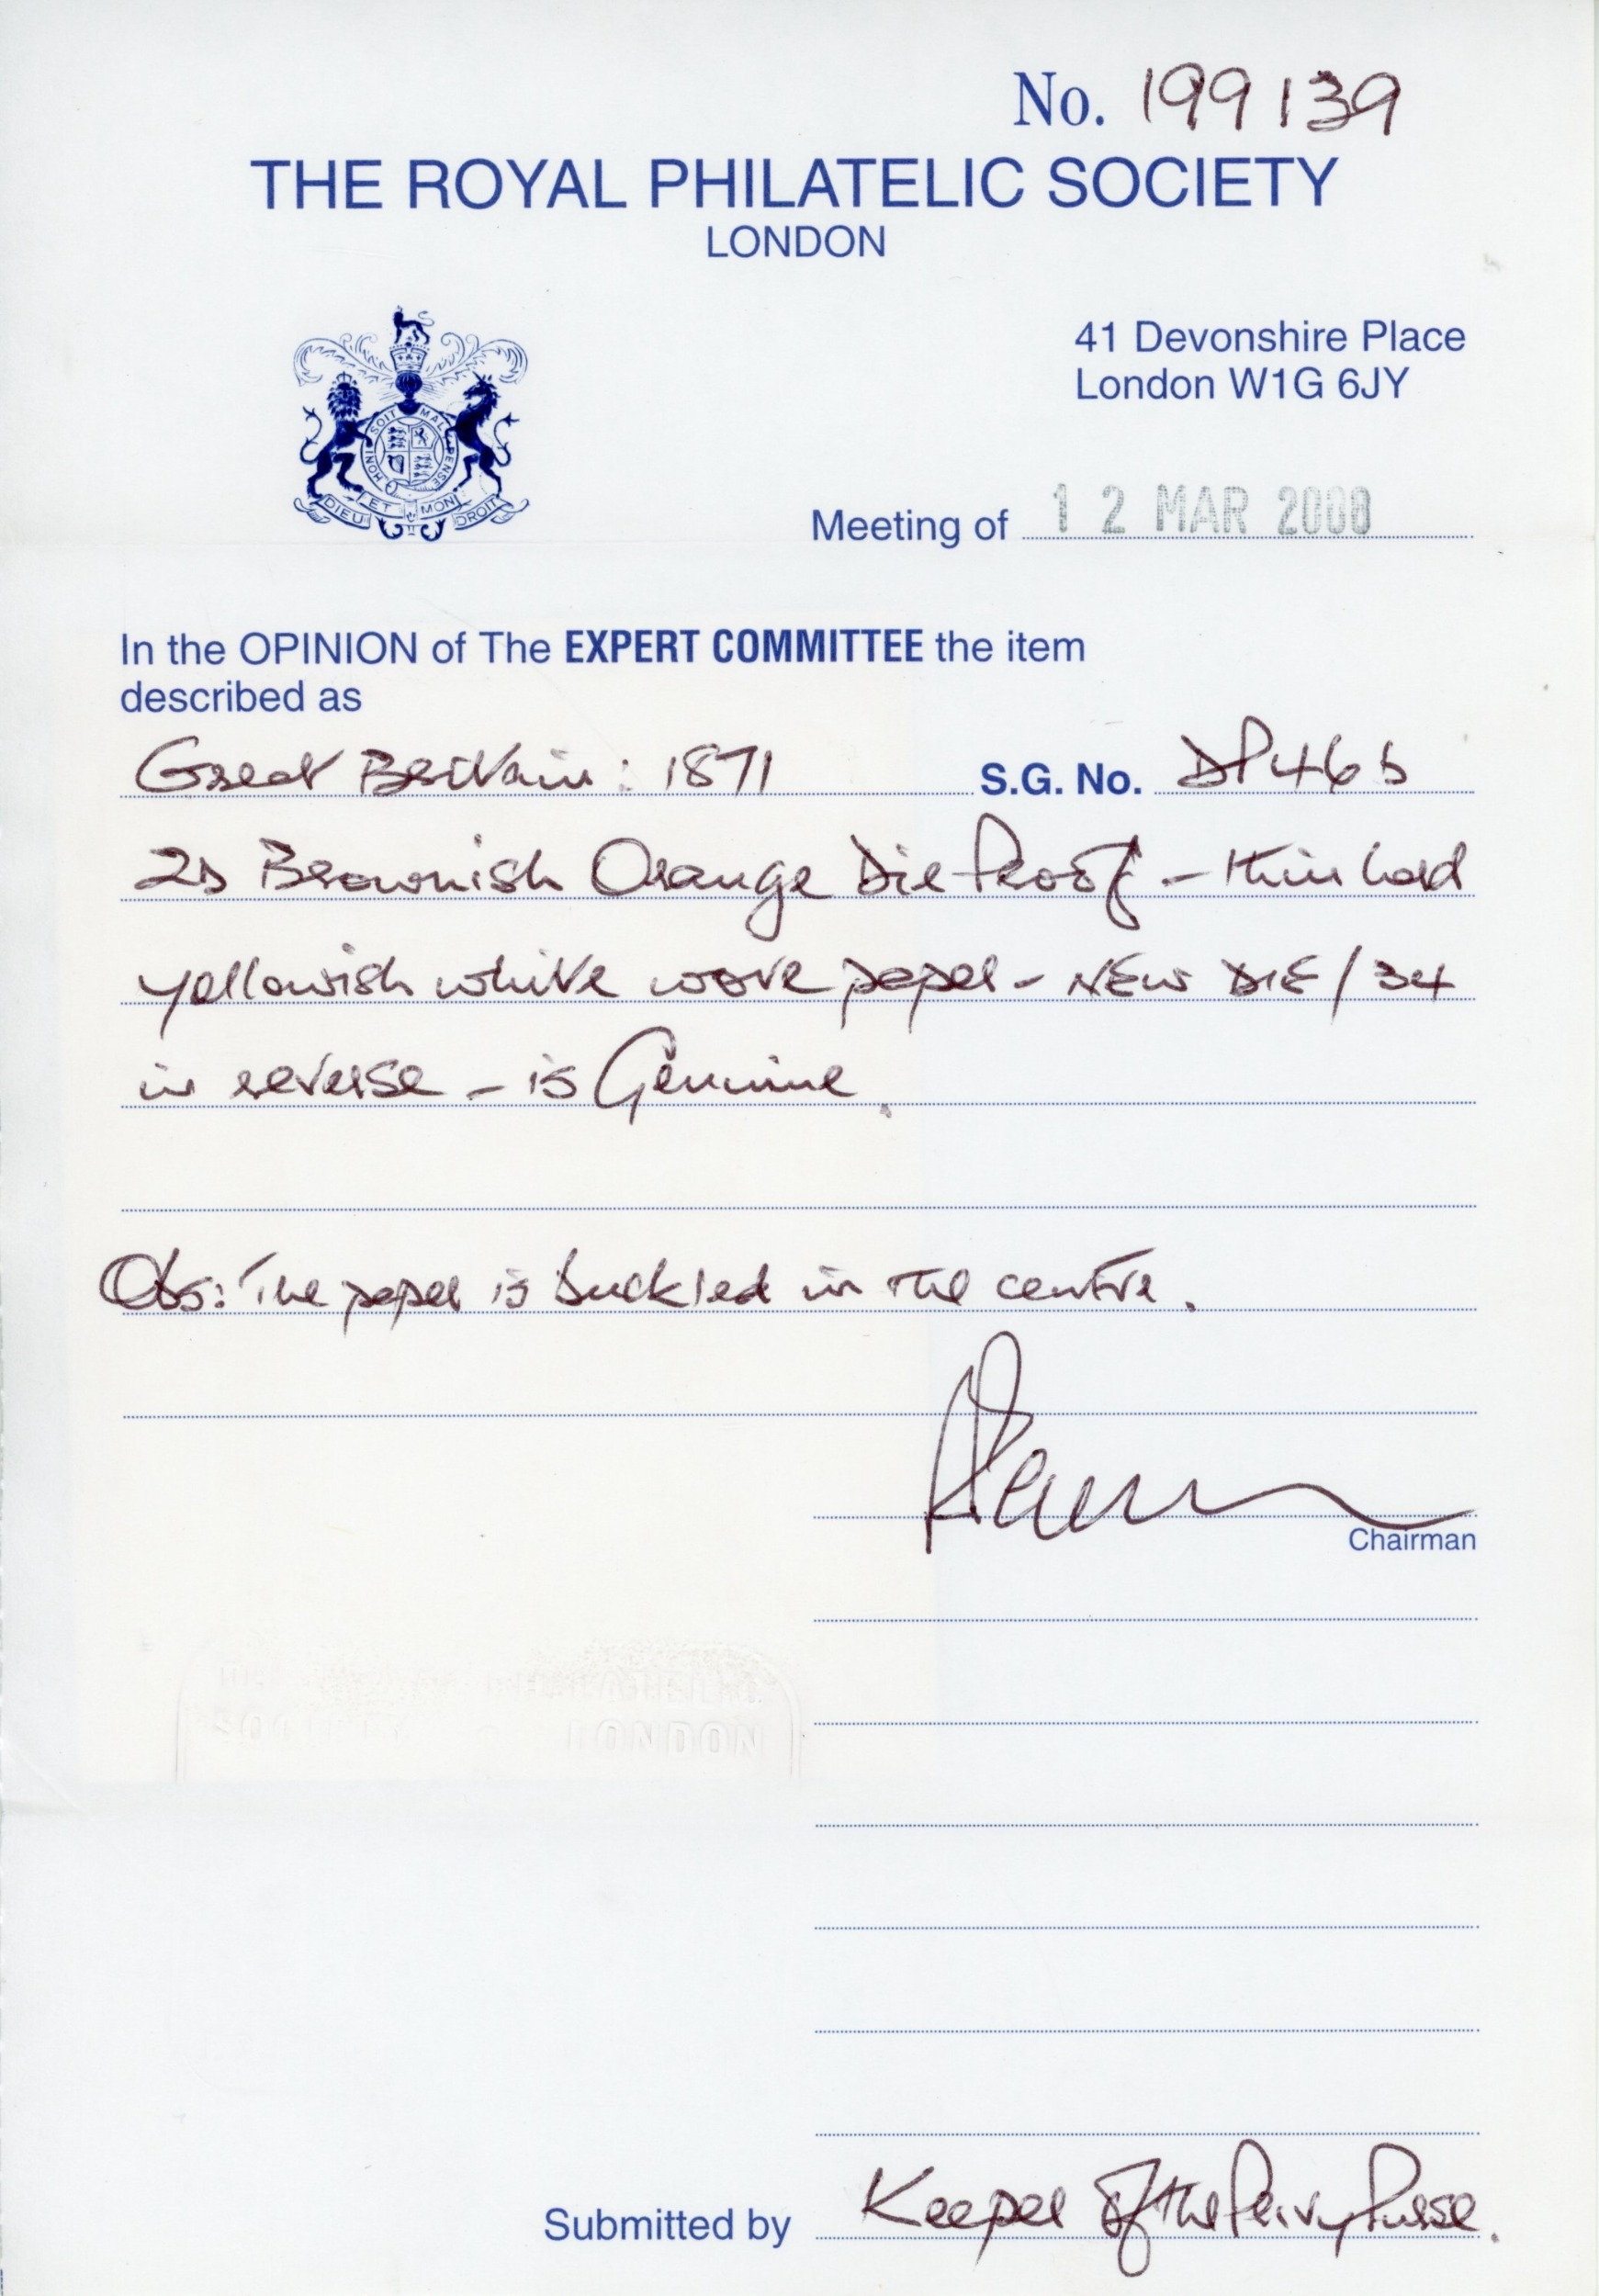 No. 199139
THE ROYAL PHILATELIC SOCIETY
LONDON
41 Devonshire Place
London W1G 6JY
HONI SOIT MAL PENSE
DIEU ET MON DROIT
Meeting of 12 MAR 2008
In the OPINION of The EXPERT COMMITTEE the item
described as
Great Britain: 1871 S.G. No. DP46b
2d Brownish Orange Die Proof - thin hard
yellowish white wove paper - NEW DIE/34
in reverse - is Genuine.
Obs: The paper is buckled in the centre.
Chairman
LONDON
Submitted by Keeper of the Privy Purse.